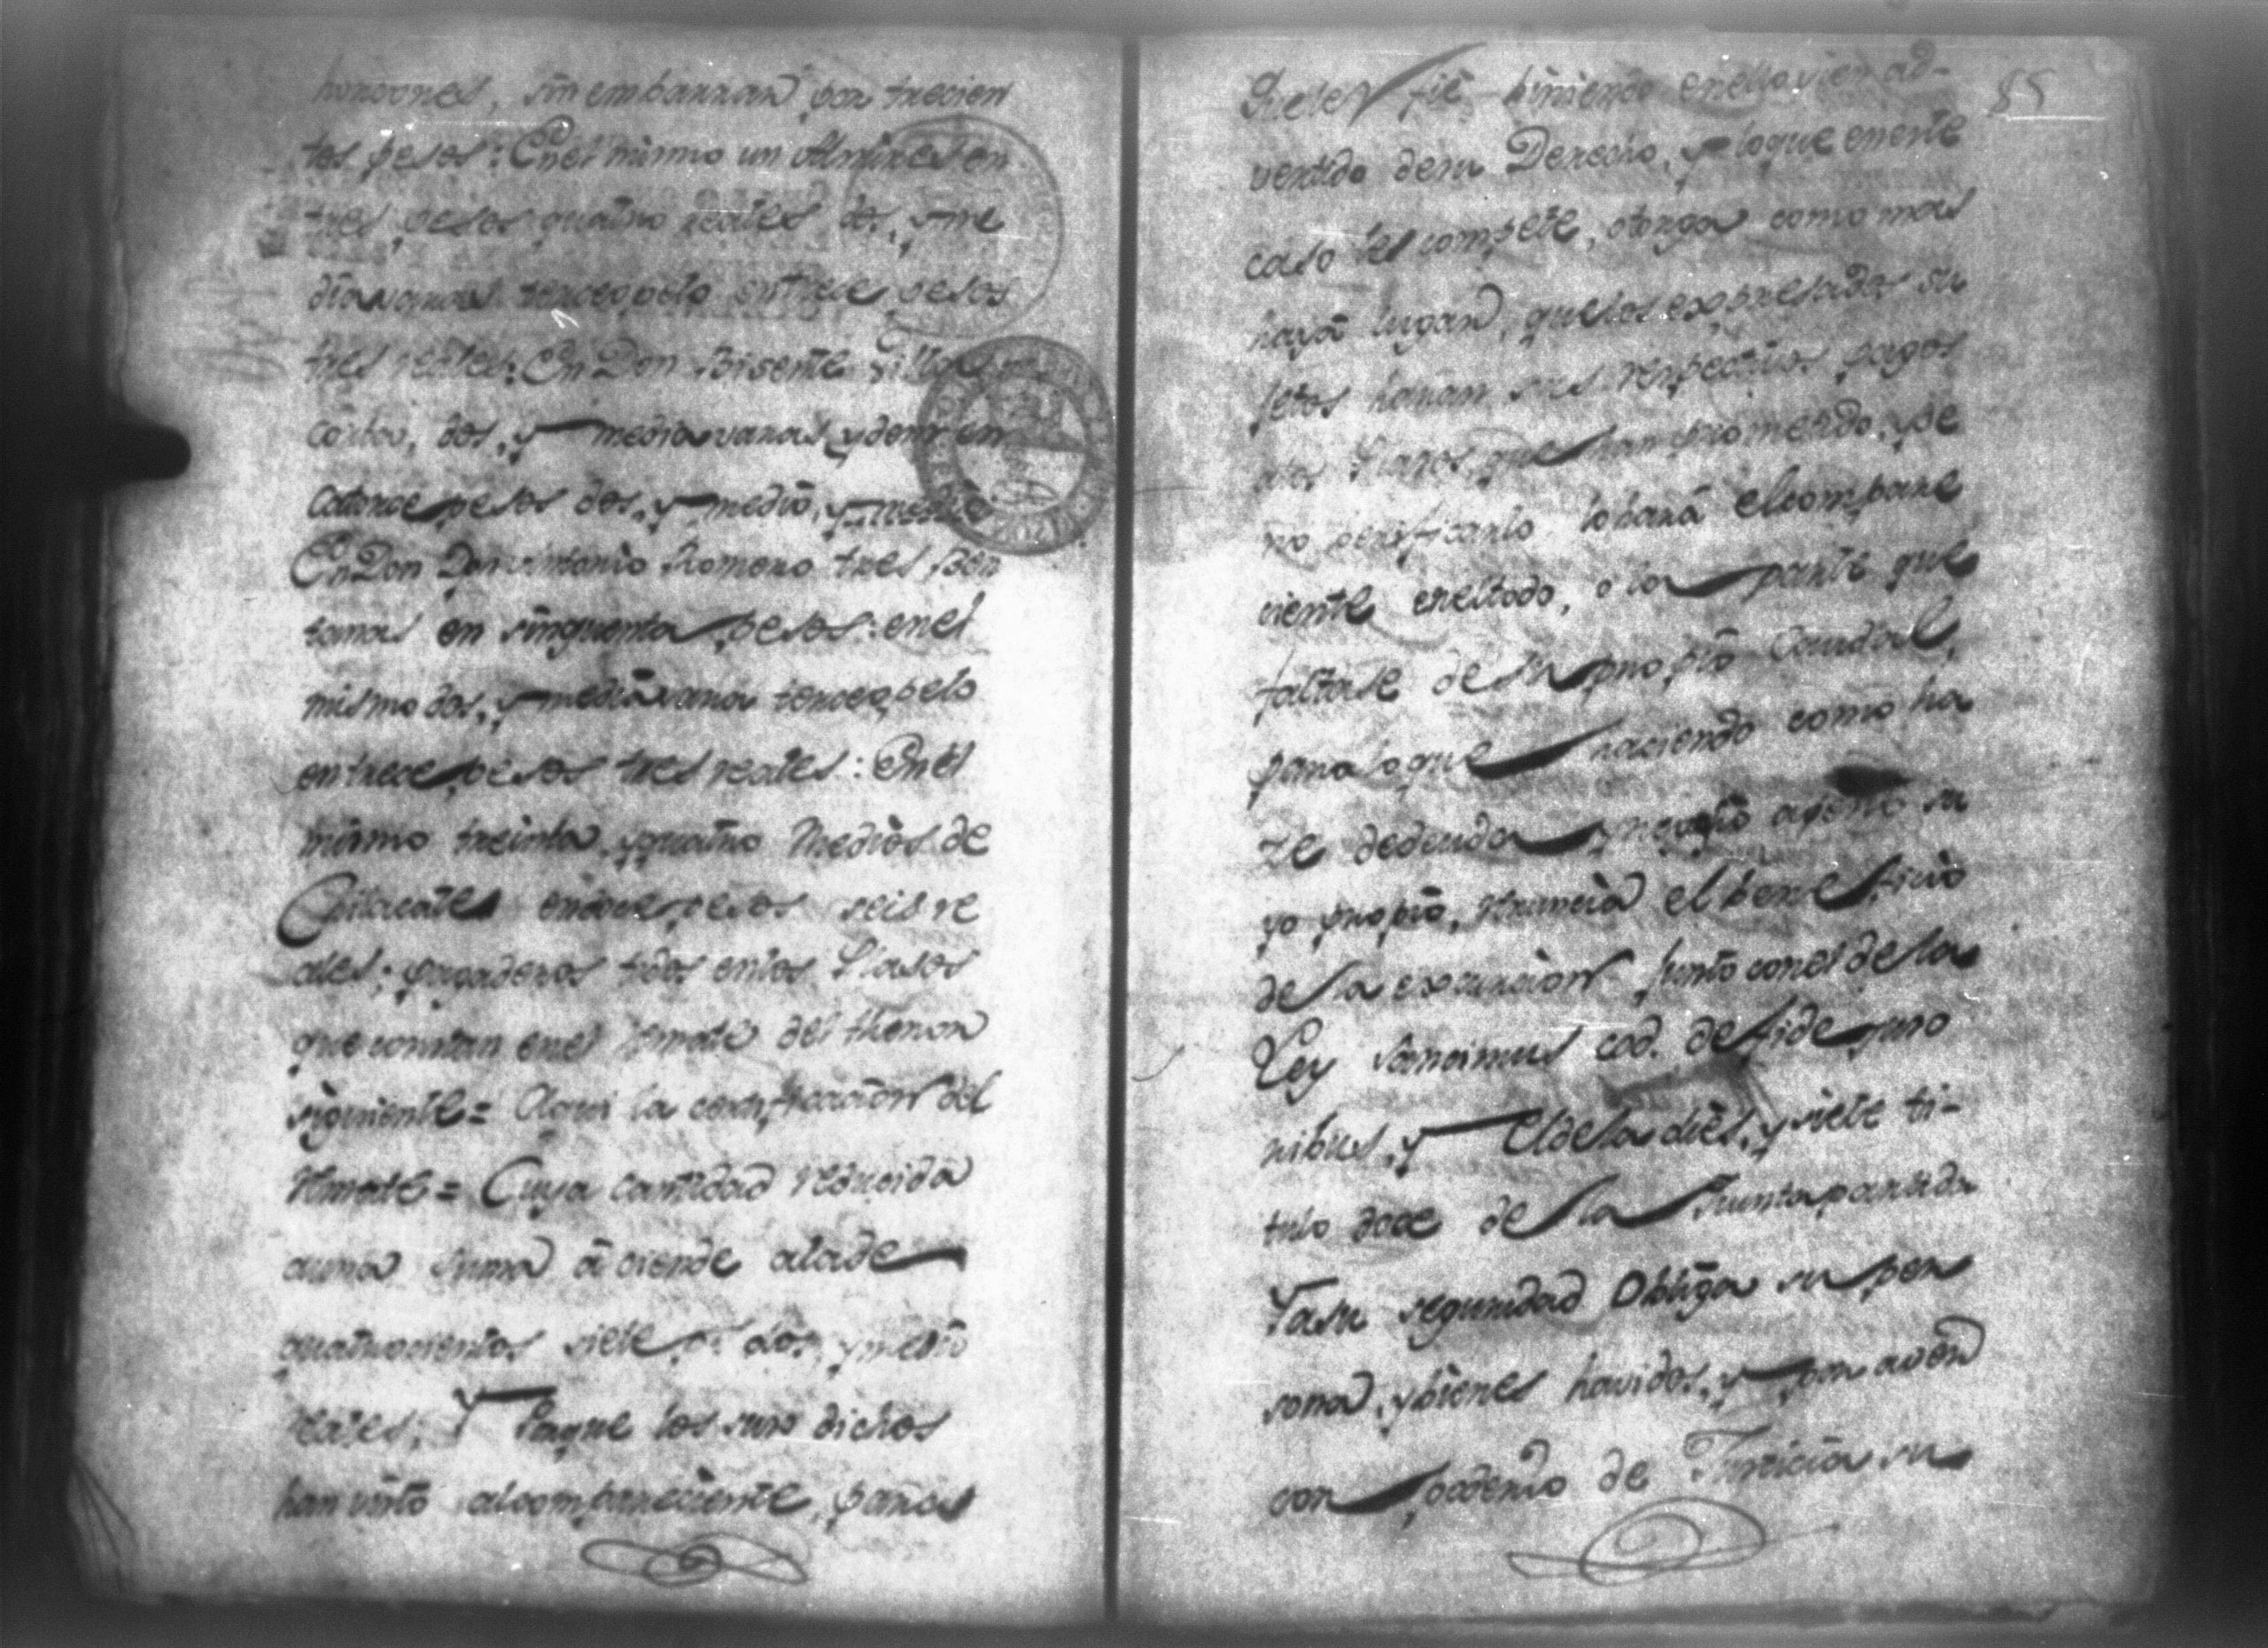 horcones, sin embarrar por trecien
tos pesos: En el mismo un Almires en
tres pesos quatro reales dos, y me
dia varas terciopelo en trece pesos
tres reales: En Don Bisente Villa
corta, dos, y media varas y demi en
catorce pesos dos, y medio, y medio
En Don Antonio Romero tres Ben
tanas en sinquenta pesos: en el
mismo dos, y media vara terciopelo
en trece pesos tres reales: En el
mismo treinta, y quatro Medios de
en onse pesos seis re
ales; pagaderos todos en los Plasos
que constan en el Remate del thenor
siguiente = Aqui la certificacion del
Remate = Cuya cantidad reducida
auna suma aciende alade
quatrocientos siete ps. dos, y medio
reales; Y Paque los suso dichos
han visto alcompareciente, paraes
85
fie biniendo enello vien ad-
vertido desu Derecho, y loque eneste
caso les compete, otorga como mas
haya lugar, quelos expresados su
jetos haran sus respectivos pagos
alos Plasos que han prometido, y de
no berificarlo lohará elcompare
ciente eneltodo, o la parte que
faltase de su propio Caudal,
para loque haciendo como ha
ze dedeuda y negosio ageno su
yo propio, renuncia el beneficio
de la excursion junto conel de la
Ley sancimus cod. de fide yuso
ribus, y el dela dies, y siete ti-
tulo doce de la Quinta partida
Yasu seguridad Obliga su per
sona, y bienes havidos, y por aver
con poderio de Justicia su